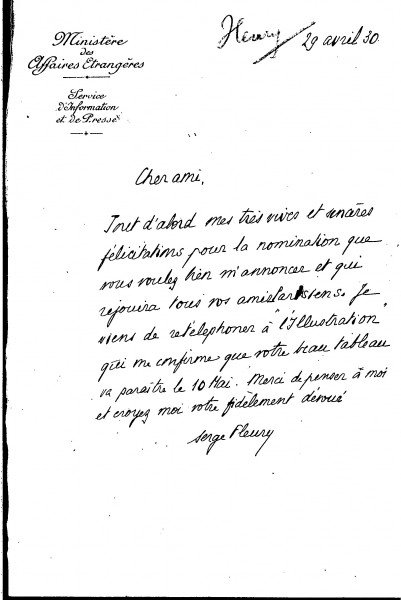 Fleury
29 avril 30.
Ministère
des
Affaires Etrangères
Service
d'Information
et de Presse
Cher ami,
Tout d'abord mes très vives et sincères
félicitations pour la nomination que
vous voulez bien m'annoncer et qui
rejouira tous vos amis Parisiens. Je
viens de retéléphoner à "l'Illustration"
qui me confirme que votre beau tableau
va paraître le 10 Mai. Merci de penser à moi
et croyez moi votre fidèlement dévoué
Serge Fleury